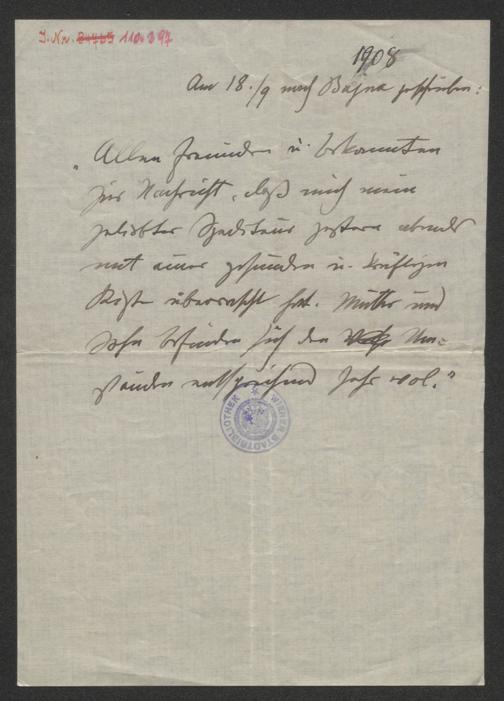 I. Nr. 110.397
1908
Am 18./9 nach Bajna geschrieben:
„Allen Freunden u. Bekannten
zur Nachricht, daß mich mein
geliebter Spediteur gestern abends
mit einer gesunden u. kräftigen
Kiste überrascht hat. Mutter und
Sohn befinden sich den Um-
ständen entsprechend sehr wol."
WIENER STADTBIBLIOTHEK